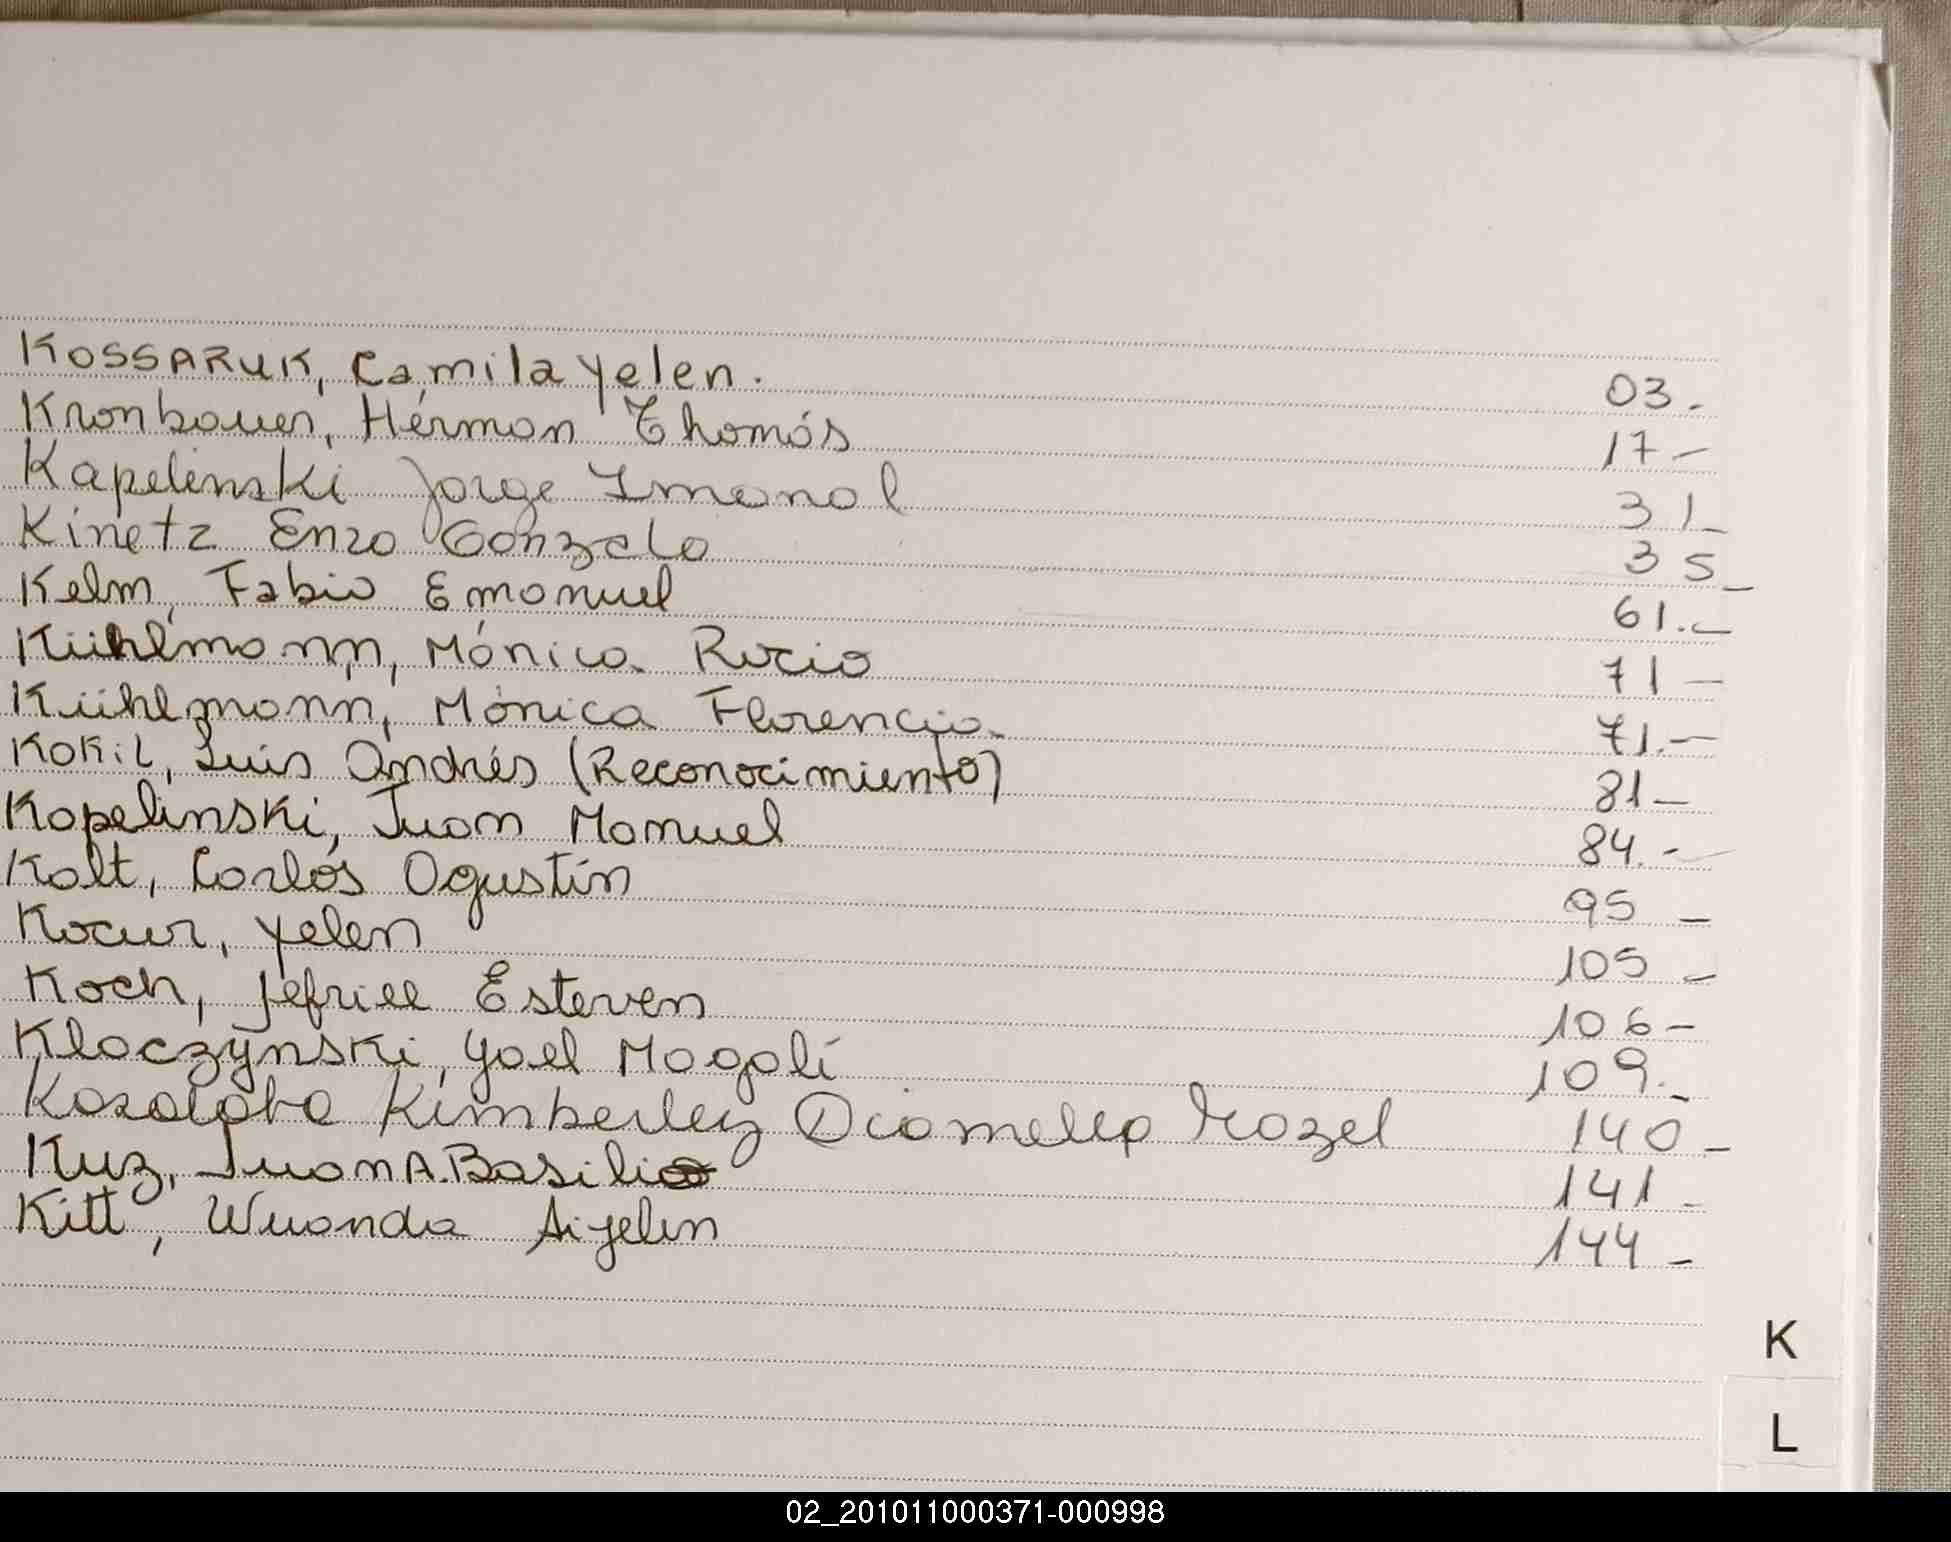 KOSSARUK, Camila Yelen. 03.-
Kronbauer, Hérman Thomás 17-
Kapelinski Jorge Imanol 31-
Kinetz Enzo Gonzalo 35-
Kelm, Fabio Emanuel 61.-
Kühlmann, Mónica Rocio 71-
Kühlmann, Mónica Florencia 71.-
Kokil, Luis Andrés (Reconocimiento) 81-
Kapelinski, Juan Manuel 84.-
Kolt, Carlos Agustín 95-
Kocur, Yelen 105-
Koch, Jefriee Esteven 106-
Kloczynski, Yael Magalí 109.-
Kimberley Mazel 140-
Kuz, Juan A. Basilio 141-
Kitt, Wuanda Aiyelen 144-
K
L
02_201011000371-000998